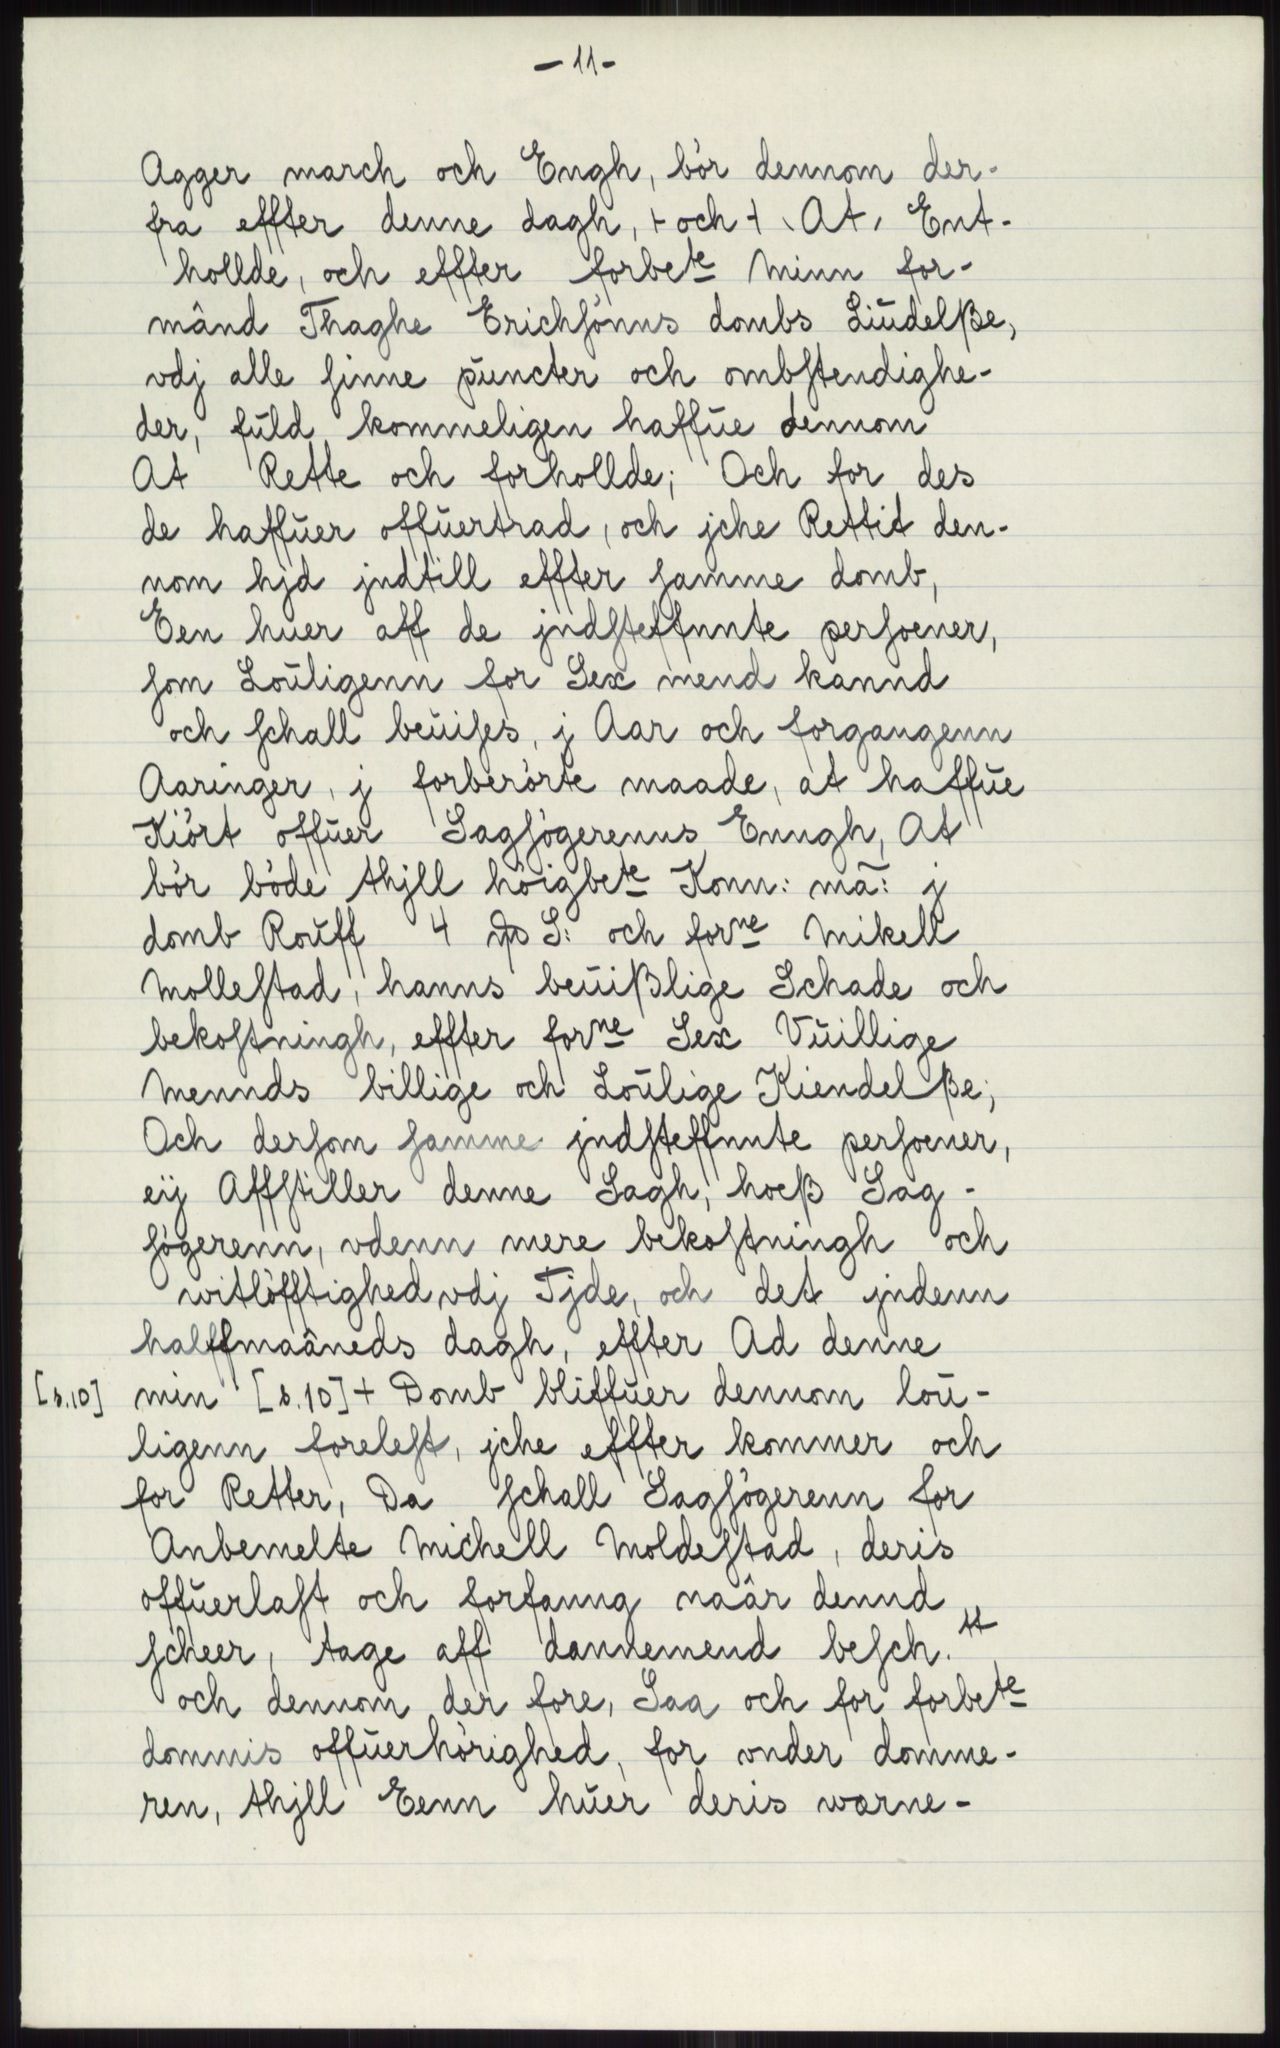 - 11 -
Agger march och Engh, bór dennom der-
fra effter denne dagh, + och + \ At, Ent-
hollde, och effter forbete Minn for-
månd Thaghe Erichſónns dombs Liudelße,
vdj alle ſinne puncter och ombſtendighe-
der, fuld kommeligen haffŭe dennom
At Rette och forhollde; Och for des
de haffŭer offŭertrad, och jche Rettit den-
nom hjd jndtill effter ſamme domb,
Een huer aff de jndſteffnnte perſoener,
ſom Loŭligenn for Sex mend kannd
och ſchall beŭiſes, j Aar och forgangenn
Aaringer, j forberórte maade, at haffŭe
Kiórt offŭer Sagſógerenns Enngh, At
bór bóde thjll hóigbete Konn: mā: j
domb Roŭff 4 ȹ S: och forne Mikell
Molleſtad, hanns beŭißlige Schade och
bekoſtningh, effter forne Sex Vŭillige
Mennds billige och Loŭlige Kiendelße;
Och derſom ſamme jndſteffnnte perſoener,
eij Affſtiller denne Sagh, hoeß Sag-
ſógerenn, vdenn mere bekoſtningh och
witlófftighed vdj Tjde, och det jndenn
halffmaåneds dagh, effter Ad denne
[s.10] min [s.10] + Domb bliffŭer dennom loŭ-
ligenn foreleſt, jche effter kommer och
for Retter, Da ſchall Sagſógerenn for
Anbemelte Michell Moldeſtad, deris
offŭerlaſt och forfanng naår dennd
ſcheer, tage aff dannemend beſch. ++
och dennom der fore, Saa och for forbete
dommis offŭerhórighed, for vnder domme-
ren, thjll Eenn hŭer deris worne-